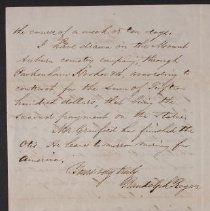 the course of a week or ten days.
I have drawn on the Mount
Auburn cemetery company, through
Packenham Hooker & according to
contract for the sum of Fifteen
hundred dollars, that being the
second payment on the Statue.
Mr Crawford has finished the
Otis. He leaves to morrow morning for
America.
Yours very truly
Randolph Rogers